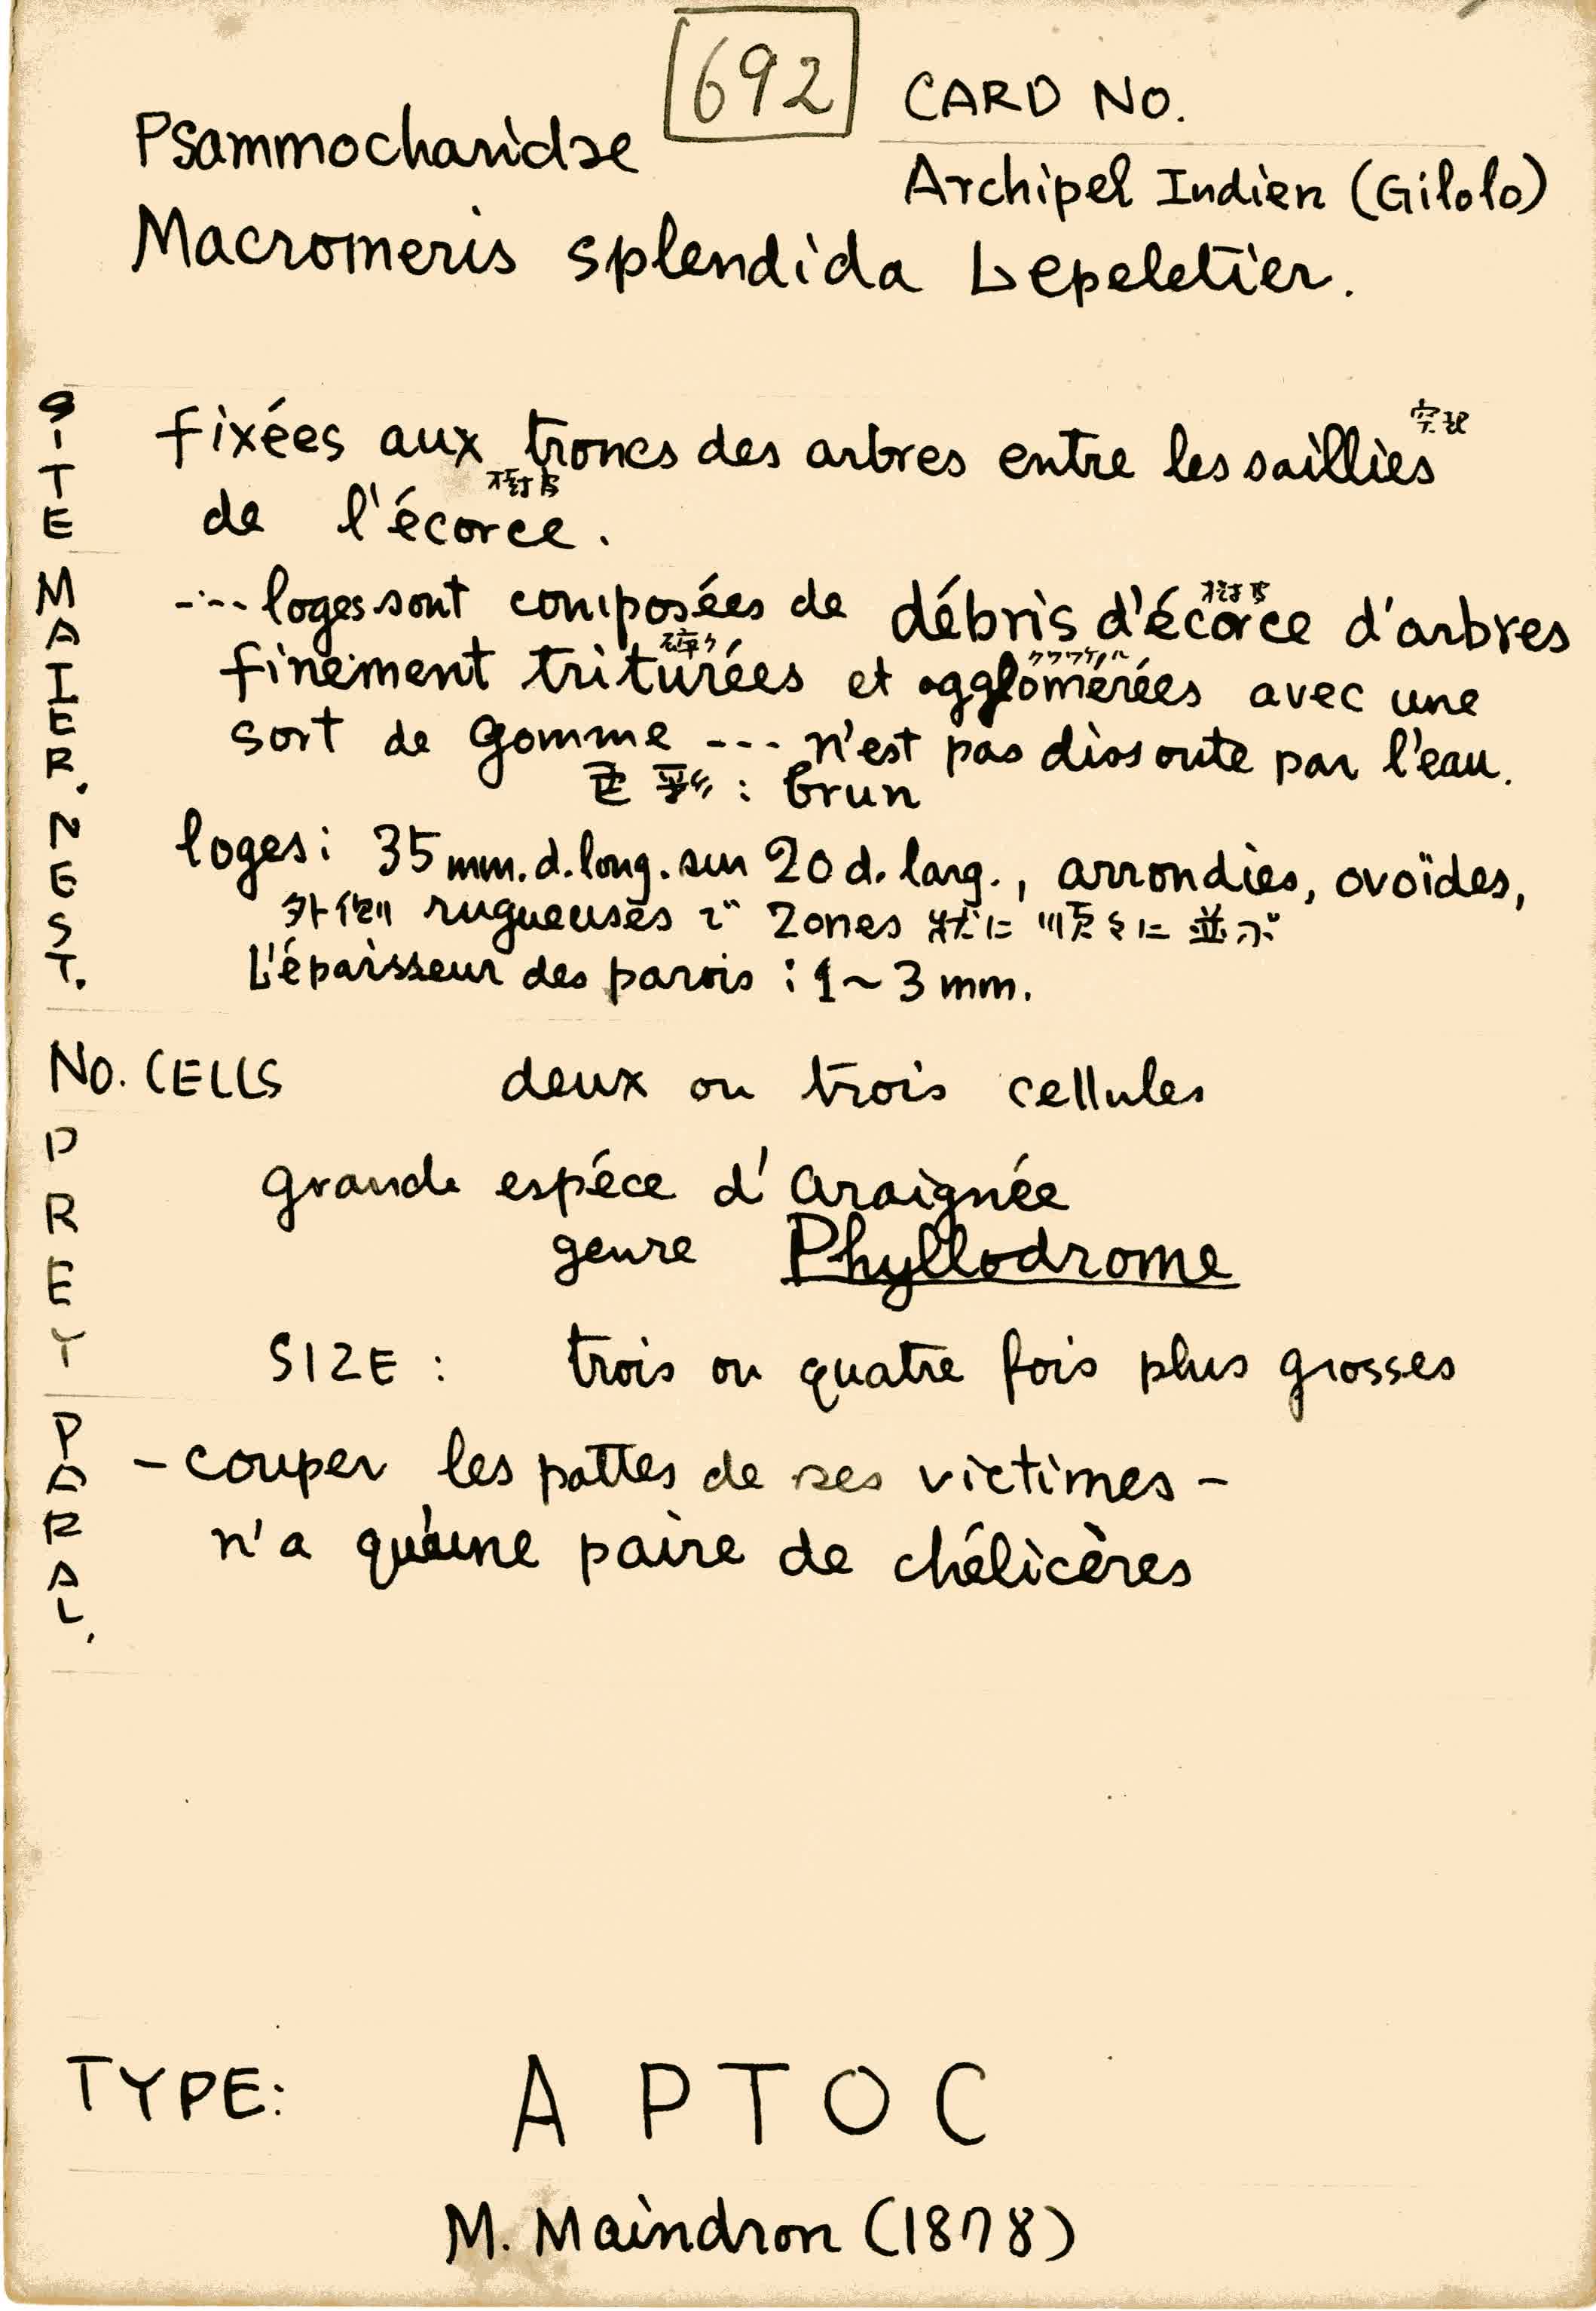 692
CARD NO.
Psammocharidae
Archipel Indien (Gilolo)
Macromeris splendida Lepeletier.
SITE
fixées aux troncs des arbres entre les saillies
突起
樹皮
de l'écorce.
MATER. NEST.
---- loges sont composées de débris d'écorce d'arbres
樹皮
砕ク
finement triturées et agglomérées avec une
sort de gomme --- n'est pas dissoute par l'eau.
色彩: brun
loges: 35 mm. d. long. sur 20 d. larg., arrondies, ovoïdes,
外側 rugueuses で zones 状に順々に並ぶ
L'épaisseur des parois : 1~3 mm.
NO. CELLS deux ou trois cellules
PREY
grande espéce d'Araignée
genre Phyllodrome
SIZE : trois ou quatre fois plus grosses
PARAL.
- couper les pattes de ses victimes -
n'a qu'une paire de chélicères
TYPE: A P T O C
M. Maindron (1878)